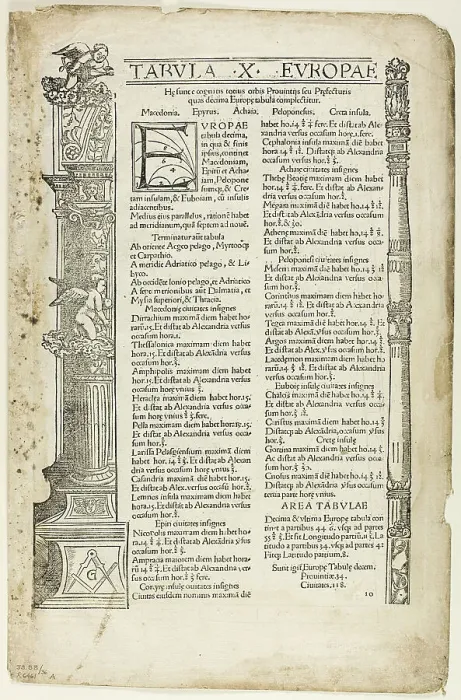 TABVLA ·X· EVROPAE
Hę sunt e cognitis totius orbis Prouintijs seu Pręfecturis
quas decima Europę tabula complectitur.
Macedonia. Epyrus. Achaia. Peloponesus. Creta insula.
EVROPAE
tabula decima,
in qua & finis
ipsius, continet
Macedoniam,
Epirū et Acha
iam, Pelopone
sumq̨, & Cre
tam insulam, & Euboiam, cū insulis
adiacentibus.
Medius eius parallelus, rationē habet
ad meridianum, quā septem ad nouē.
Terminatur aūt tabula
Ab oriente Aegeo pelago, Myrtooq̨
et Carpathio.
A meridie Adriatico pelago, & Li
byco.
Ab occidēte Ionio pelago, et Adriatico
A septē merionibus aūt Dalmatia, et
Mysia superiori, & Thracia.
Macedonię ciuitates insignes
Dirrachium maximam diem habet ho
rarū.15. Et distat ab Alexandria versus
occasum hora.1.
Thessalonica maximam diem habet
hora.15. Et distat ab Alexādria versus
occasum hor.
Amphipolis maximam diem habet
hor.15. Et distat ab Alexandria versus
occasum horę vnius
Heraclea maximā diem habet hora.15.
Et distat ab Alexandria versus occa
sum horę vnius fere.
Pella maximam diem habet horarū.15.
Et distat ab Alexandria versus
occasum hor.
Larissa Pelasgensium maximā diem
habet hor. 14 Et distat ab Alexan
dria versus occasum horę vnius
Casandria maximā diem habet hora.15.
Et distat ab Alex. versus occasum hor.
Lemnos insula maximam diem habet
hora.15. Et distat ab Alexandria versus
occasum hor.
Epiri ciuitates insignes
Nicopolis maximam diem habet ho
ra.14 Et distat ab Alexādria ỹsus
occasum hor.
Ampracia maximam diem habet hora
rū 14 Et distat ab Alexandria, ver
sus occasum hor. fere.
Corcyrę insulę ciuitates insignes
Ciuitas eiusdem nominis maximā diē
habet ho.14 fere. Et distat ab Ale
xandria versus occasum horę.1.fere.
Cephalonia insula maximā diē habet
hora 14 Distatq̨ ab Alexandria
versus occasum hor.
Achaię ciuitates insignes
Thebę Beotię maximam diem habet
hor.14 fere. Et distat ab Alexan
dria versus occasum hor.
Megara maximā diē habet ho.14
Et distat ab Alexādria versus occasum
hor. & 30.
Athenę maximā diē habet ho.14
Et distat ab Alexandria versus occa
sum hor.
Peloponesi ciuitates insignes
Meseni maximā diē habet ho.14
Et distat ab Alexandria versus occa
sum hor.
Corinthus maximam diem habet ho
rarū.14 Et distat ab Alexādria versus
occasum hor.
Tegea maximā diē habet ho.14 Et
distat ab Alexā.ỹsus occasum hor.
Argos maximā diem habet ho.14
Et distat ab Alex.ỹsus occasum hor.
Lacedęmon maximam diem habet ho
rarū.14 Et distat ab Alexandria
versus occasum hor.
Euboię insulę ciuitates insignes
Chalcis maximā diē habet ho.14
Et distat ab Alexandria versus occa
sum hor.
Caristus maximā diem habet ho.14
Distatq̨ ab Alexādria, occasum ỹsus
hor. Cretę insulę
Gortina maximā diem habet ho.14
Ac distat ab Alexandria versus occa
sum hor. 30.
Cnosus maximā diē habet ho.14
Distatq̨ ab Alexandria ỹsus occasum
tertia parte horę vnius.
AREA TABVLAE
Decima & vltima Europę tabula con
tinet a partibus 44 6. vsq̨ ad partes
55 Et fit Longitudo partiū.11 La
titudo a partibus 34. vsq̨ ad partes 42
Fitq̨ Latitudo partium,8.
Sunt igit̃ Europę Tabulę decem.
Prouintię 34.
Ciuitates,118.
10
G
A